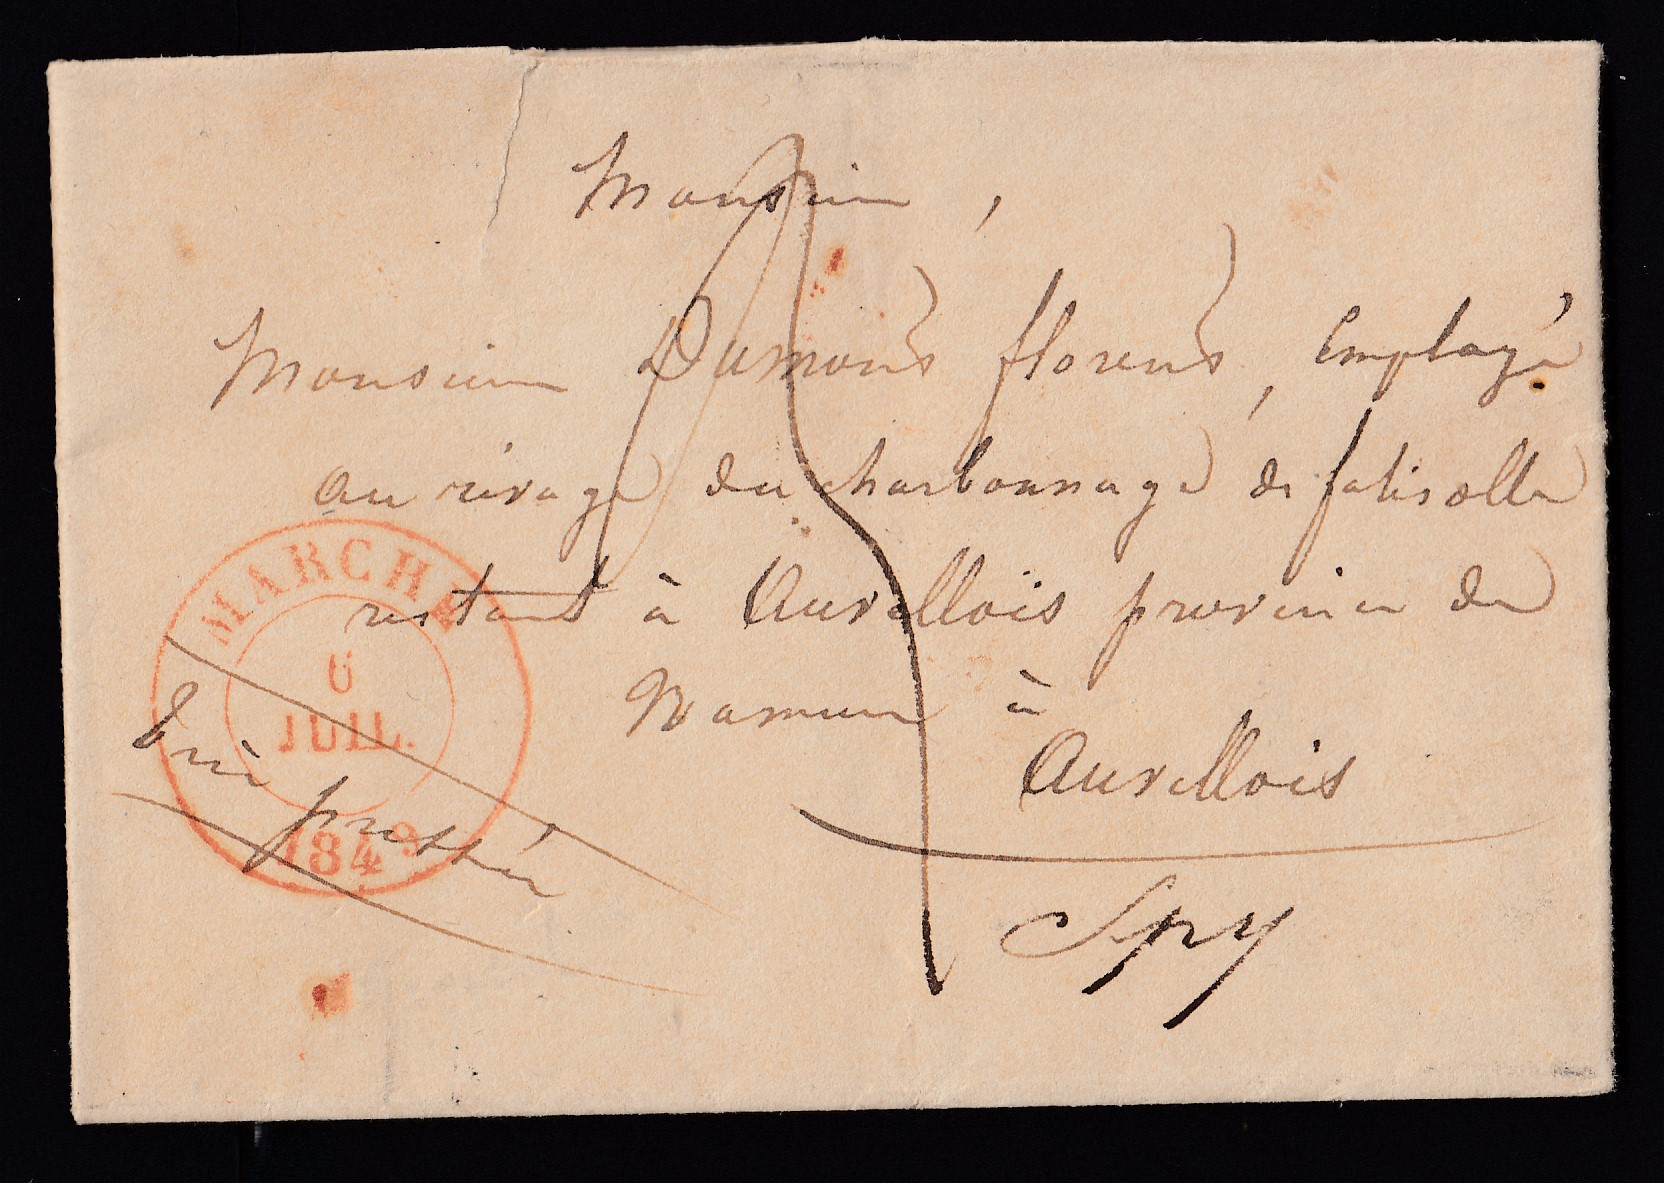 Monsieur,
Monsieur Dumont florent, Employé
au rivage du charbonnage de falisolle
restant à Auvellois province de
Namur à
Auvellois
Spy
Très pressée
MARCHE
6
JUIL.
1849